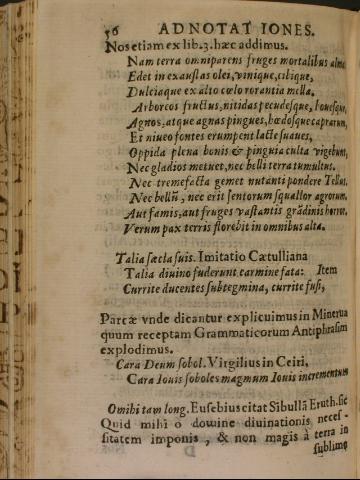 56 ADNOTATIONES.
Nos etiam ex lib.3. hæc addimus.
Nam terra omniparens fruges mortalibus almæ
Edet in exaustas olei, vinique, cilique,
Dulciaque ex alto cœlo rorantia mella.
Arboreos fructus, nitidas pecudesque, bouesque,
Agnos, atque agnas pingues, hœdosque caprarum,
Et niueo fontes erumpent lacte suaues,
Oppida plena bonis & pinguia culta vigebunt,
Nec gladios metuet, nec belli terra tumultus.
Nec tremefacta gemet nutanti pondere Tellus.
Nec bellū, nec erit sentorum squallor agrorum.
Aut famis, aut fruges vastantis grādinis horror.
Verum pax terris florebit in omnibus alta.
Talia sæcla suis. Imitatio Cætulliana
Talia diuino fuderunt carmine fata: Item
Currite ducentes subtegmina, currite fusi,
Parcæ vnde dicantur explicuimus in Minerua
quum receptam Grammaticorum Antiphrasim
explodimus.
Cara Deum sobol. Virgilius in Ceiri.
Cara Iouis soboles magmum Iouis incrementum
O mihi tam long. Eusebius citat Sibullā Eruth. sic
Quid mihi o domine diuinationis neces-
sitatem imponis, & non magis à terra in
sublime